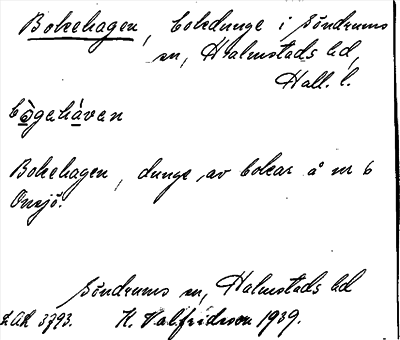 Bokehagen, bokdunge i Söndrums
sn, Halmstads hd,
Hall. l.
bògehàven
Bokehagen, dunge av bokar å nr 6
Onsjö.
Söndrums sn, Halmstads hd
LAK 3793. H. Valfridsson 1939.